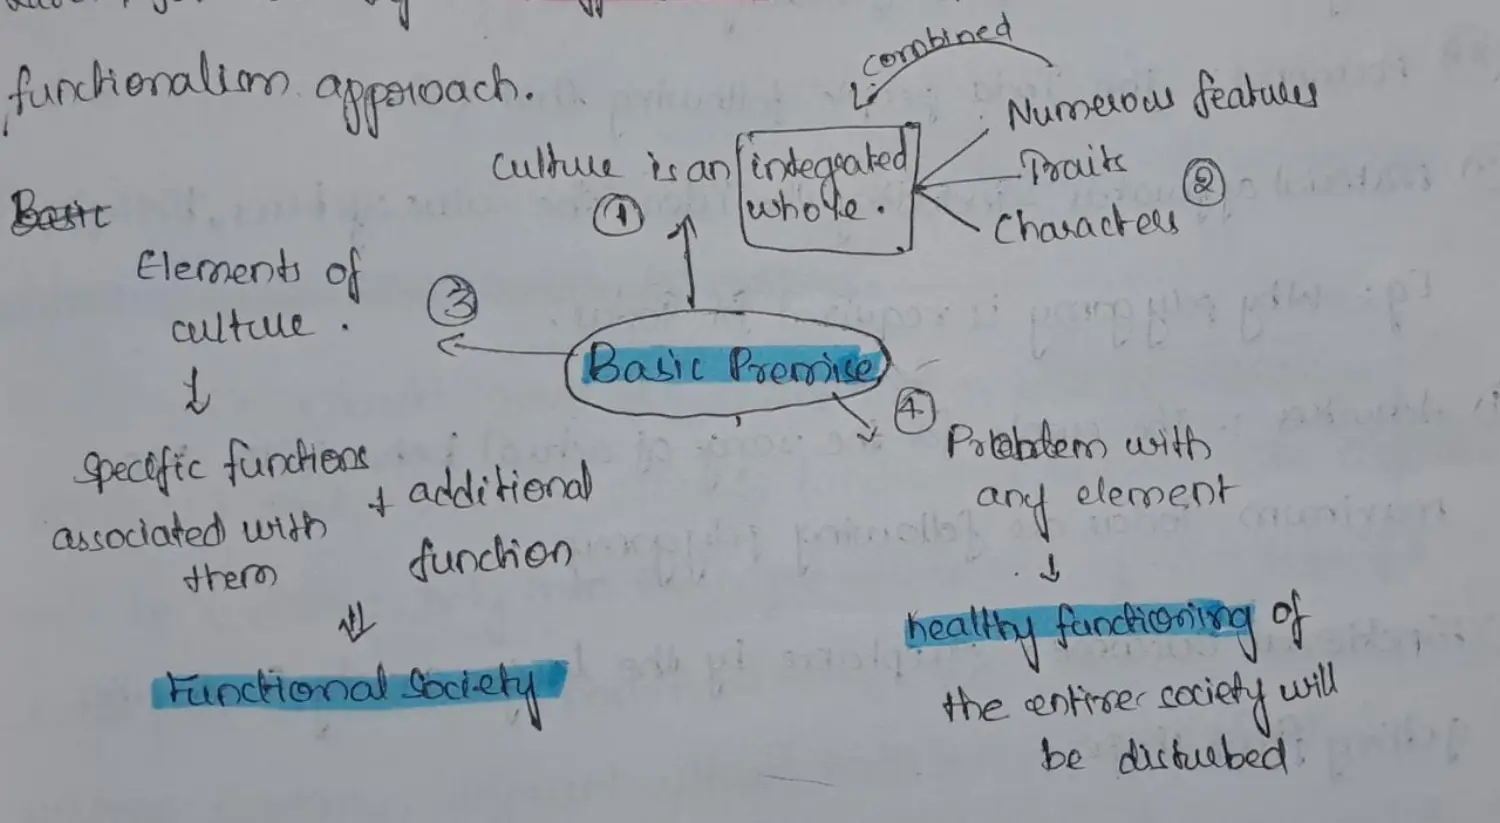 functionalism approach.
combined
Numerous features
Culture is an integrated
whole.
Traits
Characters
①
②
Basic
Elements of
culture.
③
Basic Premise
④
Problem with
any element
specific functions
associated with
them
+ additional
function
healthy functioning of
the entire society will
be disturbed.
Functional Society